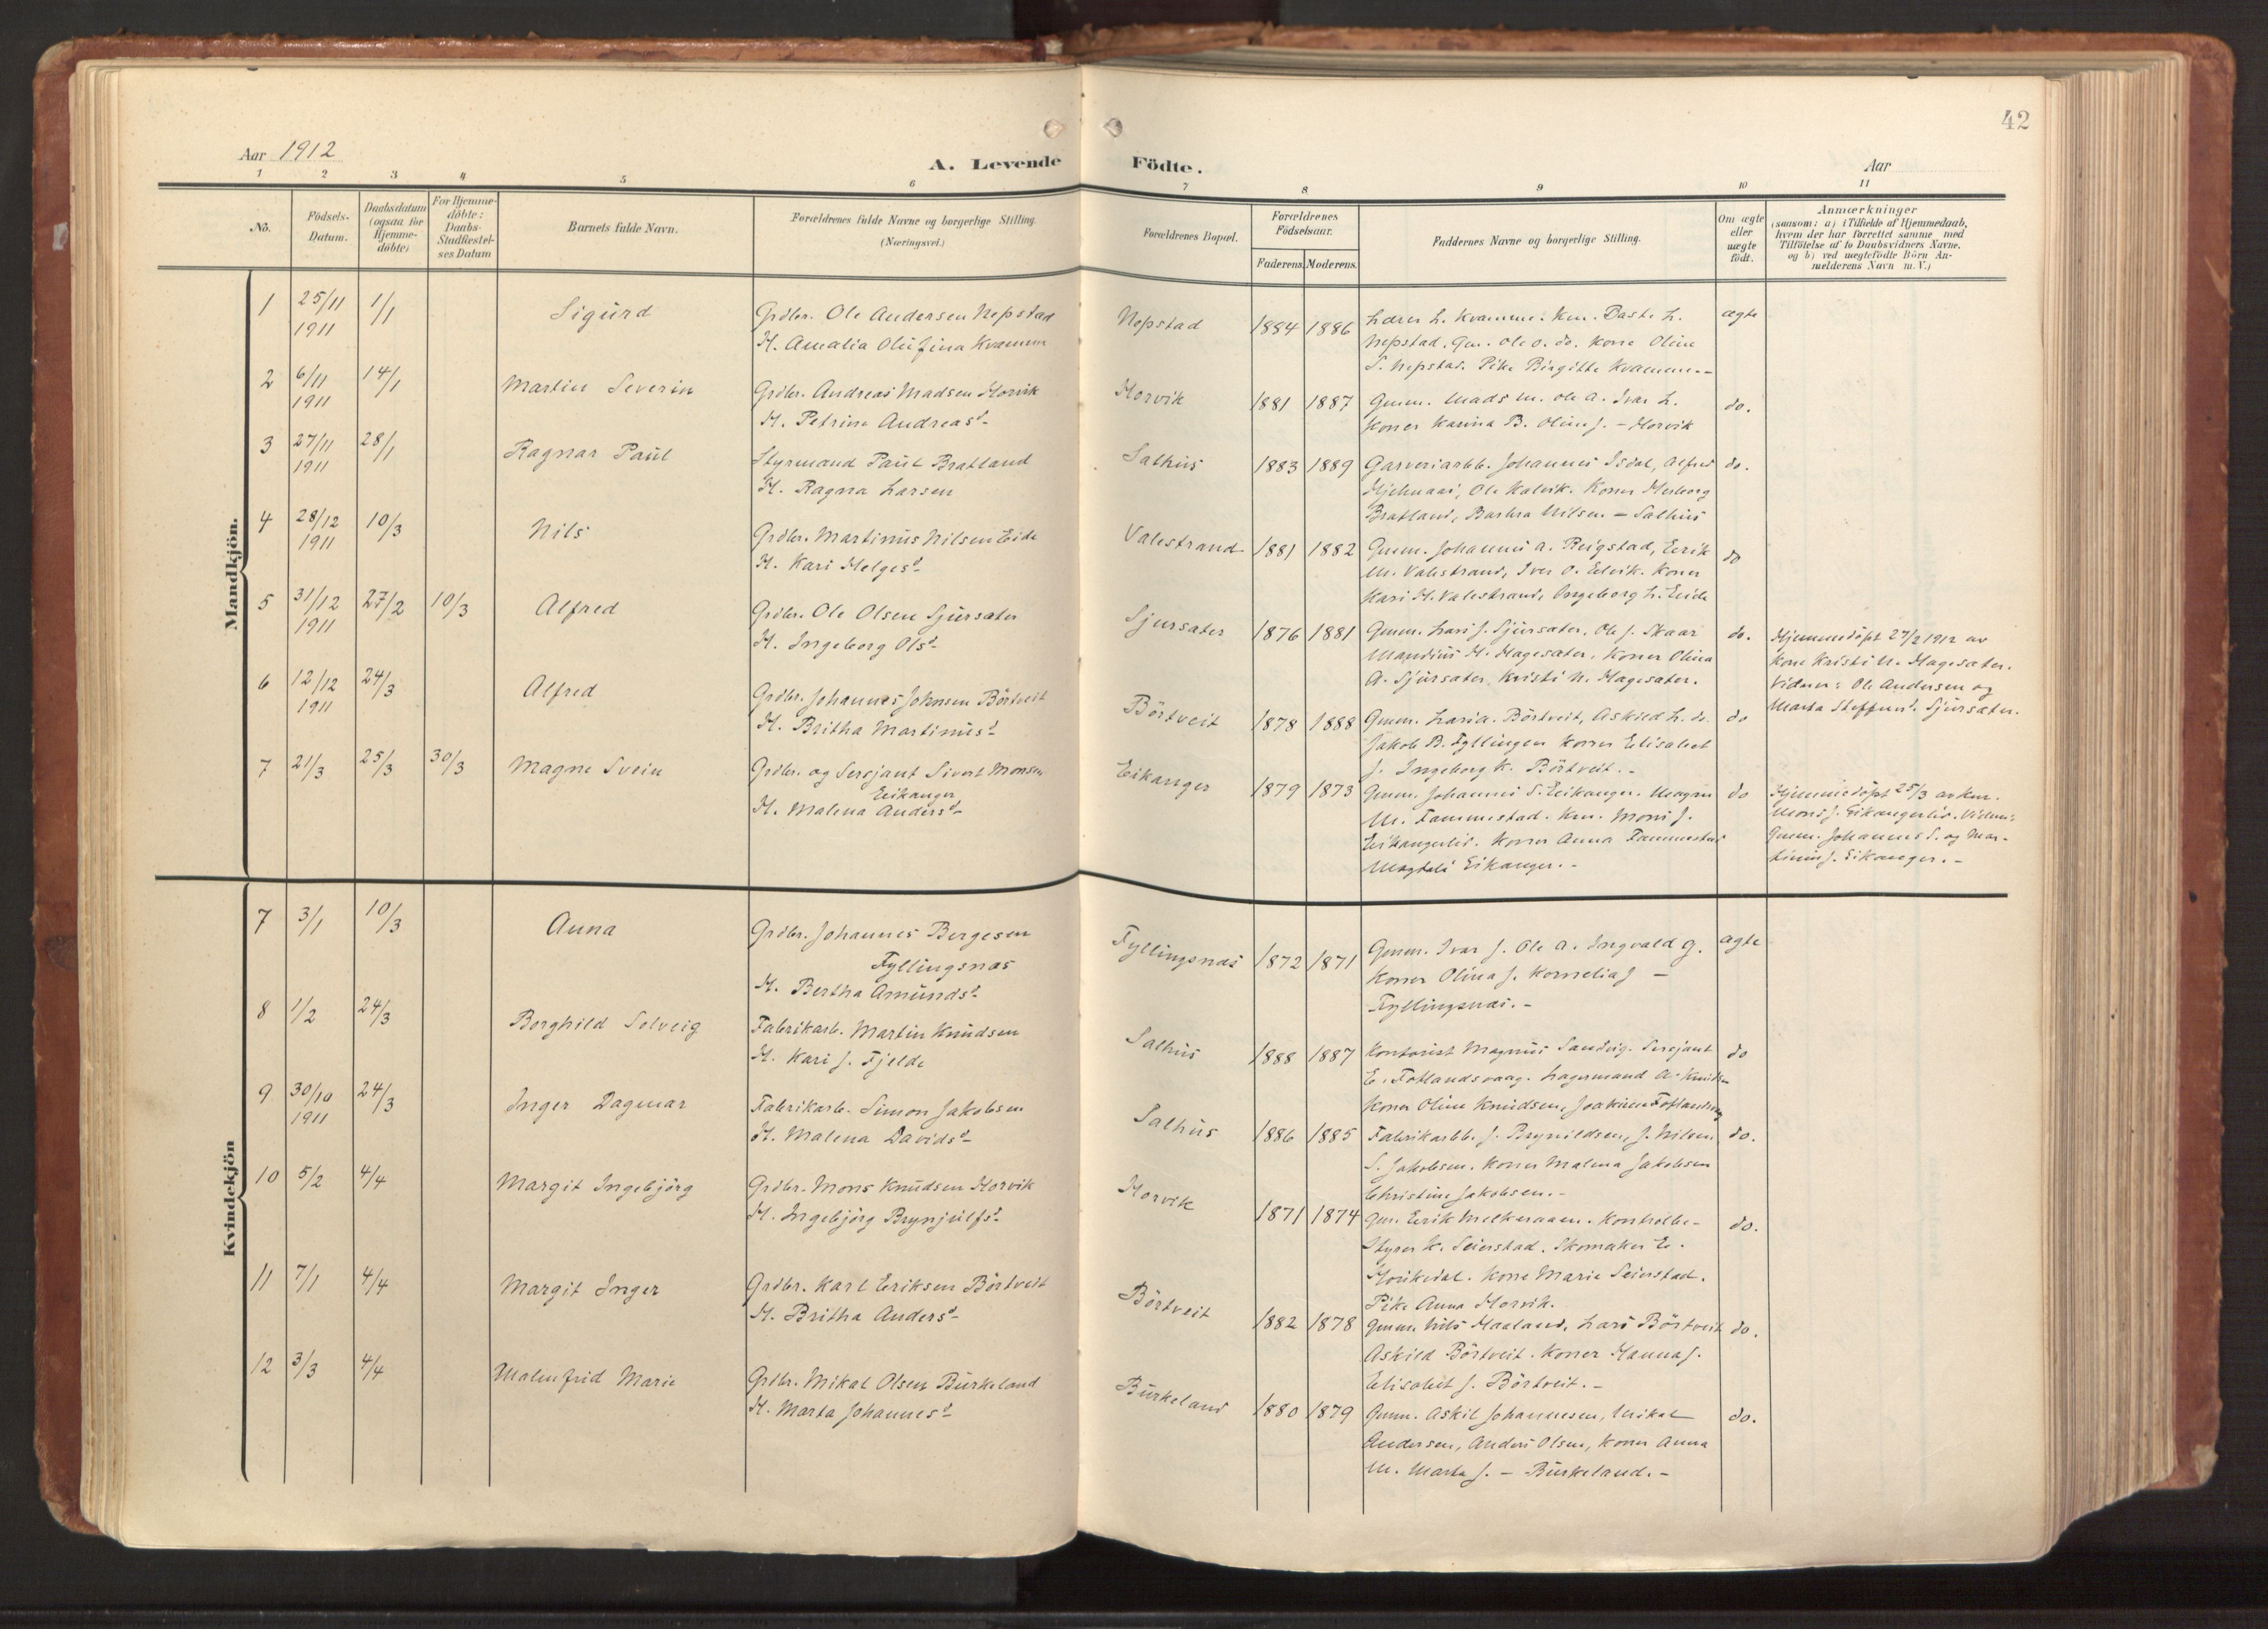 42
Aar 1912
A. Levende Födte.
Aar
1 2 3 4 5 6 7 8 9 10 11
No.
Födsels-Datum.
Daabsdatum (ogsaa for Hjemme-döbte)
For Hjemme-döbte: Daabs-Stadfæstel-ses Datum
Barnets fulde Navn.
Forældrenes fulde Navne og borgerlige Stilling.
(Næringsvei.)
Forældrenes Bopæl.
Forældrenes Födselsaar.
Faderens. Moderens.
Faddernes Navne og borgerlige Stilling.
Om ægte eller uægte födt.
Anmærkninger
(saasom: a) i Tilfælde af Hjemmedaab, hvem der har forrettet samme med Tilföielse af to Daabsvidners Navne, og b) ved uægtefödte Börn An-melderens Navn m. V.)
Mandkjön.
1 25/11 1911 1/1 Sigurd
Grdbr. Ole Andersen Nepstad
H. Amalia Olufina Kvamme
Nepstad 1884 1886
Lærer L. Kvamme. Km. L.
Nepstad. Gm. Ole O. do. Kone Oline
S. Nepstad. Pike Birgitte Kvamme.-
ægte
2 6/11 1911 14/1 Martin Severin
Grdbr. Andreas Madsen Horvik
H. Petrine Andreasd-
Horvik 1881 1887
Gmm. Mads M. Ole A. Ivar L.
Koner Karina B. Oline J. - Horvik
do.
3 27/11 1911 28/1 Ragnar Paul
Styrmand Paul Bratland
H. Ragna Larsen
Salhus 1883 1889
Garveriarbb. Johannes Isdal, Alfred
Hjelmaas, Ole Kalvik. Koner Herborg
Bratland, Barbra Nilsen - Salhus
do.
4 28/12 1911 10/3 Nils
Grdbr. Martinus Nilsen Eide
H. Kari Helgesd-
Valestrand 1881 1882
Gmm. Johannes A. Reigstad, Eerik
M. Valestrand, Iver O. Eelvik. Koner
Kari H. Valestrand, Ingeborg L. Eide
do
5 31/12 1911 27/2 10/3 Alfred
Grdbr. Ole Olsen Sjursæter
H. Ingeborg Olsd-
Sjursæter 1876 1881
Gmm. Lars J. Sjursæter, Ole J. Skaar
Mandius H. Hagesæter, Koner Olina
A. Sjursæter, Kristi N. Hagesæter.
do.
Hjemmedöpt 27/2 1912 av
Kone Kristi N. Hagesæter.
Vidner: Ole Andersen og
Marta Steffensd. Sjursæter.
6 12/12 1911 24/3 Alfred
Grdbr. Johannes Johnsen Börtveit
H. Britha Martinusd-
Börtveit 1878 1888
Gmm. Lars A. Börtveit, Askild L. do.
Jakob B. Fyllingen Koner Elisabet
J. Ingeborg K. Börtveit.-
do
7 21/3 25/3 30/3 Magne Svein
Grdbr. og Sersjant Sivert Monsen
Eikanger
H. Malena Andersd-
Eikanger 1879 1873
Gmm. Johannes S. Eikanger. Magne
M. Fammestad. Km. Mons J.
Eikangerlid. Koner Anna Fammestad
Magdali Eikanger.-
do
Hjemmedöpt 25/3 av Km.
Mons J. Eikangerlid. Vidner:
Gmm. Johannes S. og Mar-
tinus J. Eikanger.-
Kvindekjön
7 3/1 10/3 Anna
Grdbr. Johannes Bergesen
Fyllingsnæs
H. Bertha Amundsd-
Fyllingsnæs 1872 1871
Gmm. Ivar J. Ole A. Ingvald G.
Koner Olina J. Kornelia J -
Fyllingsnæs.-
ægte
8 1/2 24/3 Borghild Solveig
Fabrikarb. Martin Knudsen
H. Kari J. Fjelde
Salhus 1888 1887
Kontorist Magnus Sandvig. Sersjant
E. Fotlandsvaag. Lagermand A. Knudsen
Koner Oline Knudsen, Joakime Fotlandsvaag
do
9 30/10 1911 24/3 Inger Dagmar
Fabrikarb. Simon Jakobsen
H. Malena Davidsd-
Salhus 1886 1885
Fabrikarbb. J. Brynildsen, J. Nilsen
S. Jakobsen. Koner Malena Jakobsen
Christine Jakobsen.-
do.
10 5/2 4/4 Margit Ingebjörg
Grdbr. Mons Knudsen Horvik
H. Ingebjörg Brynjulfsd-
Horvik 1871 1874
Gm. Eerik Melkeraaen. Kontrolbe-
styrer K. Seierstad. Skomaker E.
Horvikedal. Kone Marie Seierstad.
Pike Anna Horvik.
do.
11 7/1 4/4 Margit Inger
Grdbr. Karl Eriksen Börtveit
H. Britha Andersd-
Börtveit 1882 1878
Gmm. Nils Haaland, Lars Börtveit
Askild Börtveit. Koner Hanna J.
Elisabet J. Börtveit.-
do.
12 3/3 4/4 Malmfrid Marie
Grdbr. Mikal Olsen Burkeland
H. Marta Johannesd-
Burkeland 1880 1879
Gmm. Askil Johannesen, Mikal
Andersen, Anders Olsen, Koner Anna
M. Marta J. - Burkeland.-
do.